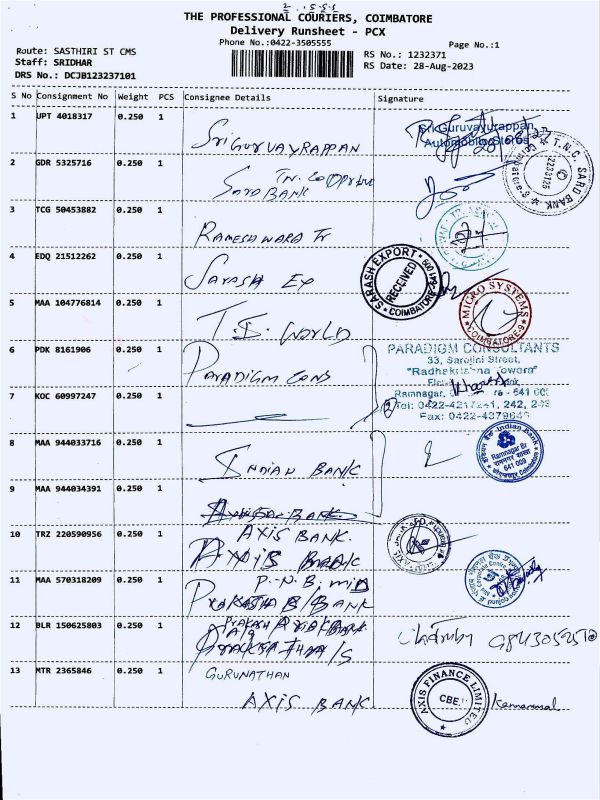 THE PROFESSIONAL COURIERS, COIMBATORE
Delivery Runsheet - PCX
Phone No.:0422-3505555
Page No.:1
Route: SASTHIRI ST CMS
Staff: SRIDHAR
DRS No.: DCJB123237101
RS No.: 1232371
RS Date: 28-Aug-2023
S No Consignment No Weight PCS Consignee Details Signature
1 UPT 4018317 0.250 1
SRI GURUVAYRAPPAN
Sri Guruvayurappan
Automobile Stores
2 GDR 5325716 0.250 1
SARD BANK
T.N.C. SARD BANK
3 TCG 50453882 0.250 1
RAMESHWARA Tr
4 EDQ 21512262 0.250 1
SARASH EX
SARASH EXPORT
RECEIVED
COIMBATORE-641 009
5 MAA 104776814 0.250 1
T.S. WORLD
MICRO SYSTEMS
COIMBATORE-9
6 PDK 8161906 0.250 1
PARADIGM CONS
PARADIGM CONSULTANTS
33, Sarojini Street,
"Radhakrishna Towers"
Ramnagar, 641 009
7 KOC 60997247 0.250 1
Tel: 0422-4217241, 242, 243
Fax: 0422-4379643
8 MAA 944033716 0.250 1
INDIAN BANK
Indian Bank
Ramnagar Br
रामनगर शाखा
641 009
9 MAA 944034391 0.250 1
10 TRZ 220590956 0.250 1
AXIS BANK.
AXIS BANK
11 MAA 570318209 0.250 1
P.N.B. MID
PRAKASH B/BANK
12 BLR 150625803 0.250 1
13 MTR 2365846 0.250 1
GURUNATHAN
AXIS BANK
AXIS FINANCE LIMITED
CBE.